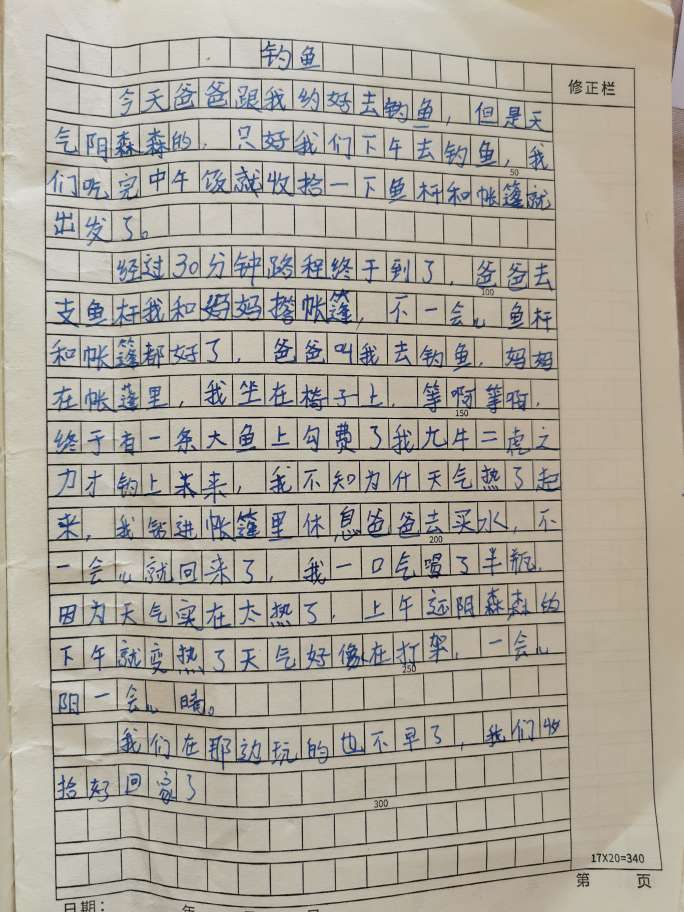 钓鱼
修正栏
今天爸爸跟我约好去钓鱼，但是天
气阴森森的，只好我们下午去钓鱼，我
50
们吃完中午饭就收拾一下鱼杆和帐篷就
出发了。
经过30分钟路程终于到了，爸爸去
100
支鱼杆我和妈妈搭帐篷，不一会儿鱼杆
和帐篷都好了，爸爸叫我去钓鱼，妈妈
在帐篷里，我坐在椅子上，等啊等啊，
150
终于有一条大鱼上勾费了我九牛二虎之
力才钓上来，我不知为什天气热了起
来，我钻进帐篷里休息爸爸去买水，不
200
一会儿就回来了，我一口气喝了半瓶，
因为天气实在太热了，上午还阴森森的
下午就变热了天气好像在打架，一会儿
250
阴一会儿晴。
我们在那边玩的也不早了，我们收
拾好回家了
300
17X20=340
第 页
日期： 年